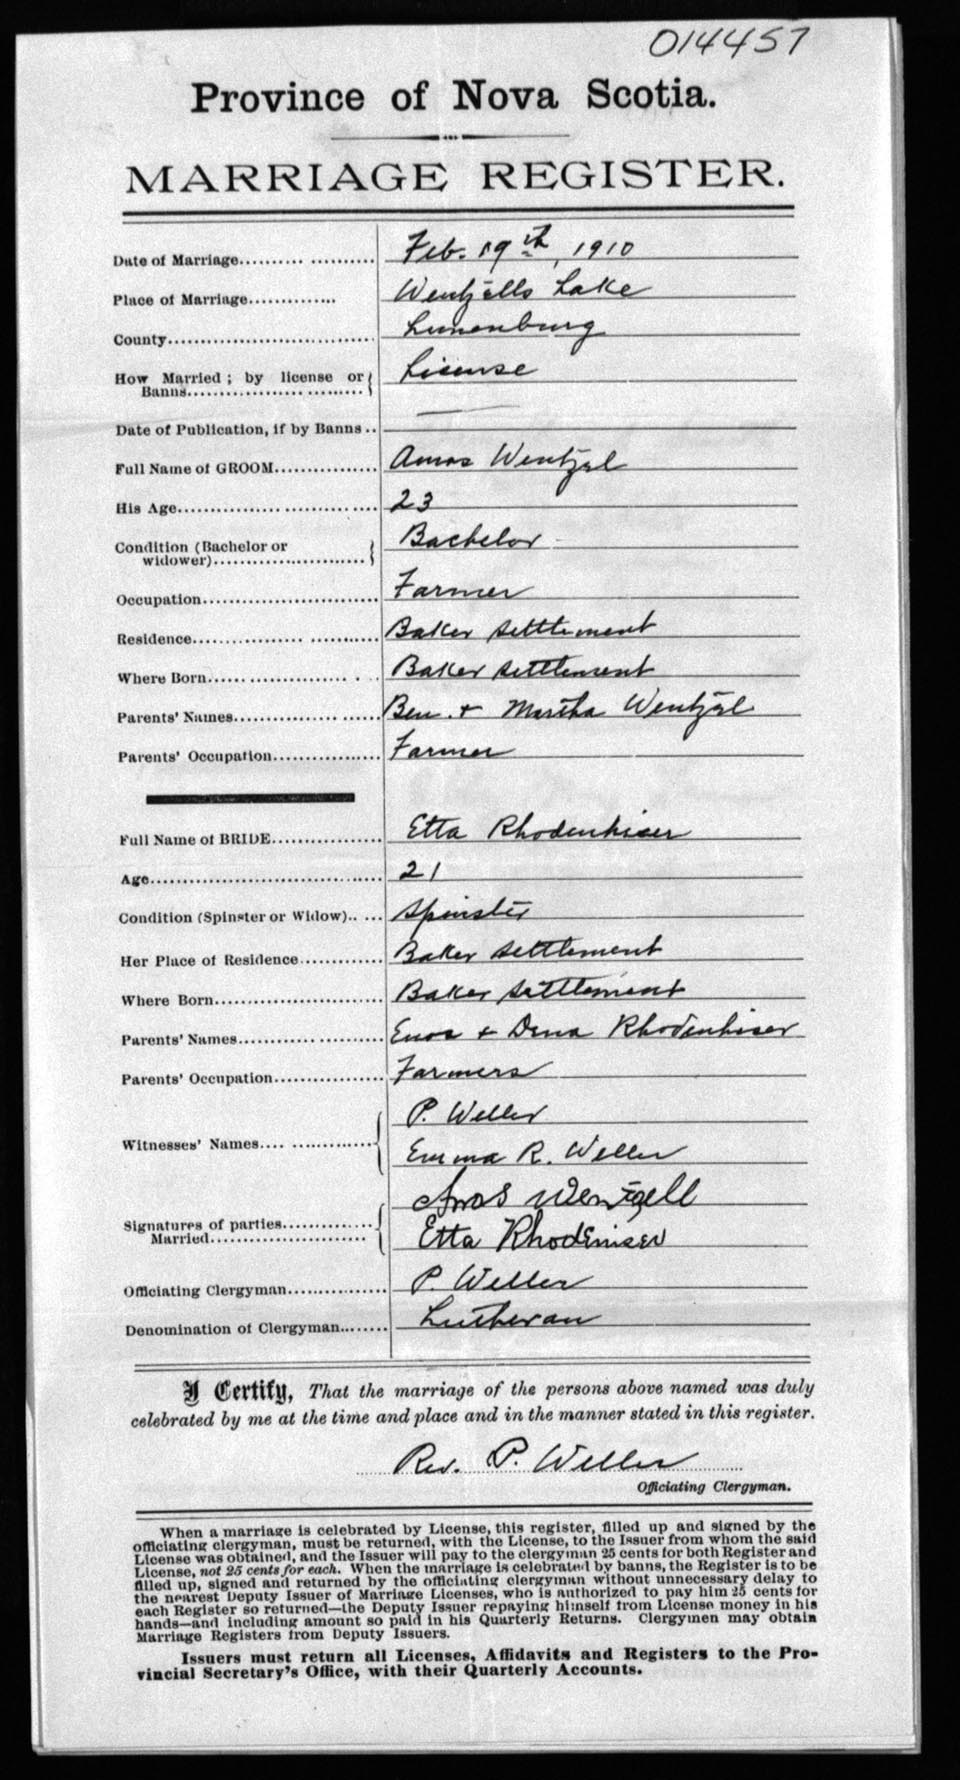 014457
Province of Nova Scotia.
MARRIAGE REGISTER.
Date of Marriage.......... ........... Feb. 19th, 1910
Place of Marriage.............. Wentzells Lake
County.................................. Lunenburg
How Married; by license or
Banns.................................. License
Date of Publication, if by Banns .. —
Full Name of GROOM................ Amos Wentzel
His Age.................................. 23
Condition (Bachelor or
widower).................................. Bachelor
Occupation............................. Farmer
Residence............................. Baker Settlement
Where Born............................. Baker Settlement
Parents' Names......................... Ben. + Martha Wentzel
Parents' Occupation.................. Farmer
Full Name of BRIDE.................. Etta Rhodenhiser
Age.................................. 21
Condition (Spinster or Widow).. ... Spinster
Her Place of Residence............. Baker Settlement
Where Born............................. Baker Settlement
Parents' Names......................... Enos + Dena Rhodenhiser
Parents' Occupation.................. Farmers
P. Weller
Witnesses' Names.... ..............
Emma R. Weller
Amos Wentzell
Signatures of parties..............
Married..........................
Etta Rhodeniser
Officiating Clergyman................ P. Weller
Denomination of Clergyman........ Lutheran
I Certify, That the marriage of the persons above named was duly
celebrated by me at the time and place and in the manner stated in this register.
Rev. P. Weller
Officiating Clergyman.
When a marriage is celebrated by License, this register, filled up and signed by the
officiating clergyman, must be returned, with the License, to the Issuer from whom the said
License was obtained, and the Issuer will pay to the clergyman 25 cents for both Register and
License, not 25 cents for each. When the marriage is celebrated by banns, the Register is to be
filled up, signed and returned by the officiating clergyman without unnecessary delay to
the nearest Deputy Issuer of Marriage Licenses, who is authorized to pay him 25 cents for
each Register so returned—the Deputy Issuer repaying himself from License money in his
hands—and including amount so paid in his Quarterly Returns. Clergymen may obtain
Marriage Registers from Deputy Issuers.
Issuers must return all Licenses, Affidavits and Registers to the Pro-
vincial Secretary's Office, with their Quarterly Accounts.